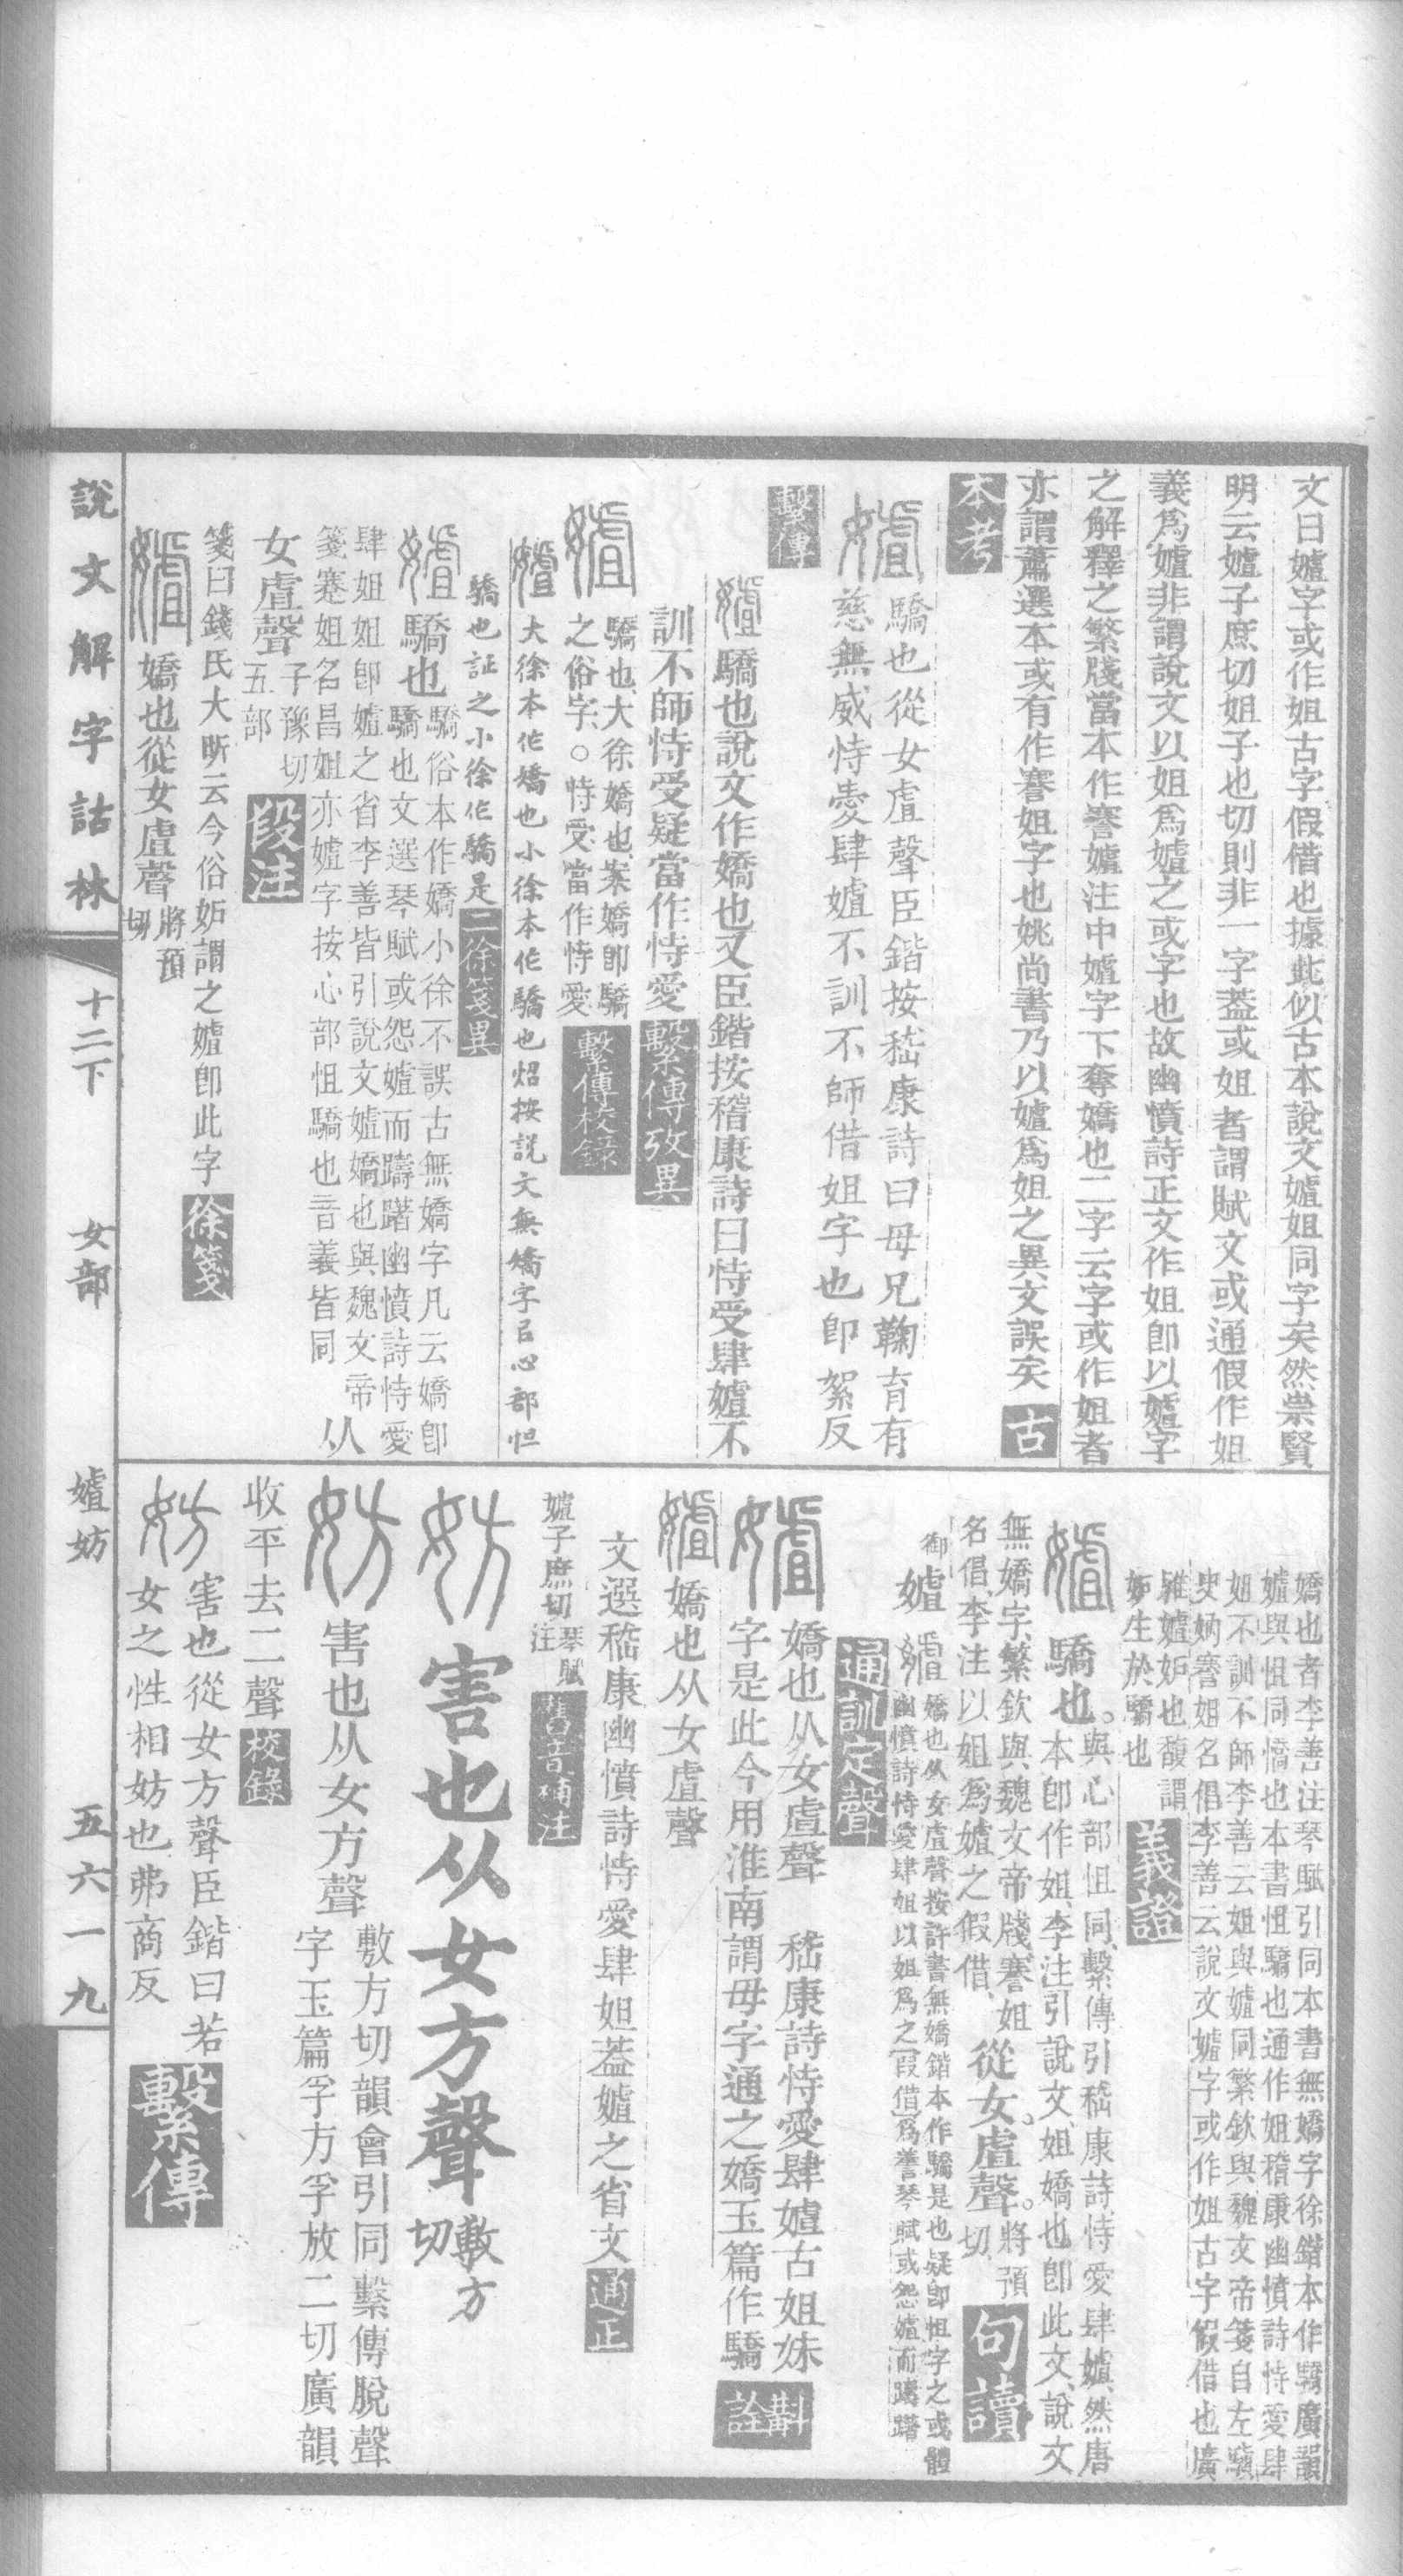 文曰嫭字或作姐古字假借也據此似古本說文嫭姐同字矣然崇賢
明云嫭子庶切姐子也切則非一字葢或姐者謂賦文或通假作姐
義爲嫭非謂說文以姐爲嫭之或字也故幽憤詩正文作姐卽以嫭字
之解釋之繁牋當本作謇嫭注中嫭字下奪嬌也二字云字或作姐者
亦謂蕭選本或有作謇姐字也姚尚書乃以嫭爲姐之異文誤矣 古
本考
驕也從女虘聲臣鍇按嵇康詩曰母兄鞠育有
慈無威恃愛肆㜘不訓不師借姐字也卽絮反
繫傳
㜘驕也說文作嬌也又臣鍇按稽康詩曰恃受肆㜘不
訓不師恃受疑當作恃愛 繫傳攷異
㜘 驕也大徐嬌也案嬌卽驕
之俗字○恃受當作恃愛 繫傳校錄
㜘大徐本作嬌也小徐本作驕也炤按說文無嬌字㠯心部怚
驕也証之小徐作驕是 二徐箋異
㜘 驕也驕俗本作嬌小徐不誤古無嬌字凡云嬌卽
驕也文選琴賦或怨㜘而躊躇幽憤詩恃愛
肆姐姐卽㜘之省李善皆引說文㜘嬌也與魏文帝
箋蹇姐名昌姐亦㜘字按心部怚驕也音義皆同 从
女虘聲 子豫切
五部 段注
箋曰錢氏大昕云今俗妬謂之㜘卽此字 徐箋
㜘 嬌也從女虘聲 將預
切
嬌也者李善注琴賦引同本書無嬌字徐鍇本作驕廣韻
㜘與怚同憍也本書怚驕也通作姐稽康幽憤詩恃愛肆
姐不訓不師李善云姐與㜘同繁欽與魏文帝箋自左䯂
史妠謇姐名倡李善云說文㜘字或作姐古字假借也廣
雅㜘妒也馥謂
妒生於驕也 義證
㜘 驕也。與心部怚同繫傳引嵇康詩恃愛肆㜘然唐
本卽作姐李注引說文姐嬌也卽此文說文
無嬌字繁欽與魏文帝牋謇姐
名倡李注以姐爲㜘之假借 從女。虘聲。將預
切 句讀
御 㜘 嬌也从女虘聲按許書無嬌鍇本作驕是也疑卽怚字之或體
幽憤詩恃愛肆姐以姐爲之〔叚借〕爲𧫧琴賦或怨㜘而躊躇
通訓定聲
㜘 嬌也从女虘聲 嵇康詩恃愛肆㜘古姐妹
字是此今用淮南謂母字通之嬌玉篇作驕 斠詮
㜘 嬌也从女虘聲
文選嵇康幽憤詩恃愛肆姐葢㜘之省文 通正
㜘子庶切 琴賦
注 舊音補注
妨 害也从女方聲 敷方
切
妨 害也从女方聲 敷方切韻會引同繫傳脫聲
字玉篇孚方孚放二切廣韻
收平去二聲 校錄
妨 害也從女方聲臣鍇曰若
女之性相妨也弗商反 繫傳
說文解字詁林 十二下 女部 㜘妨 五六一九